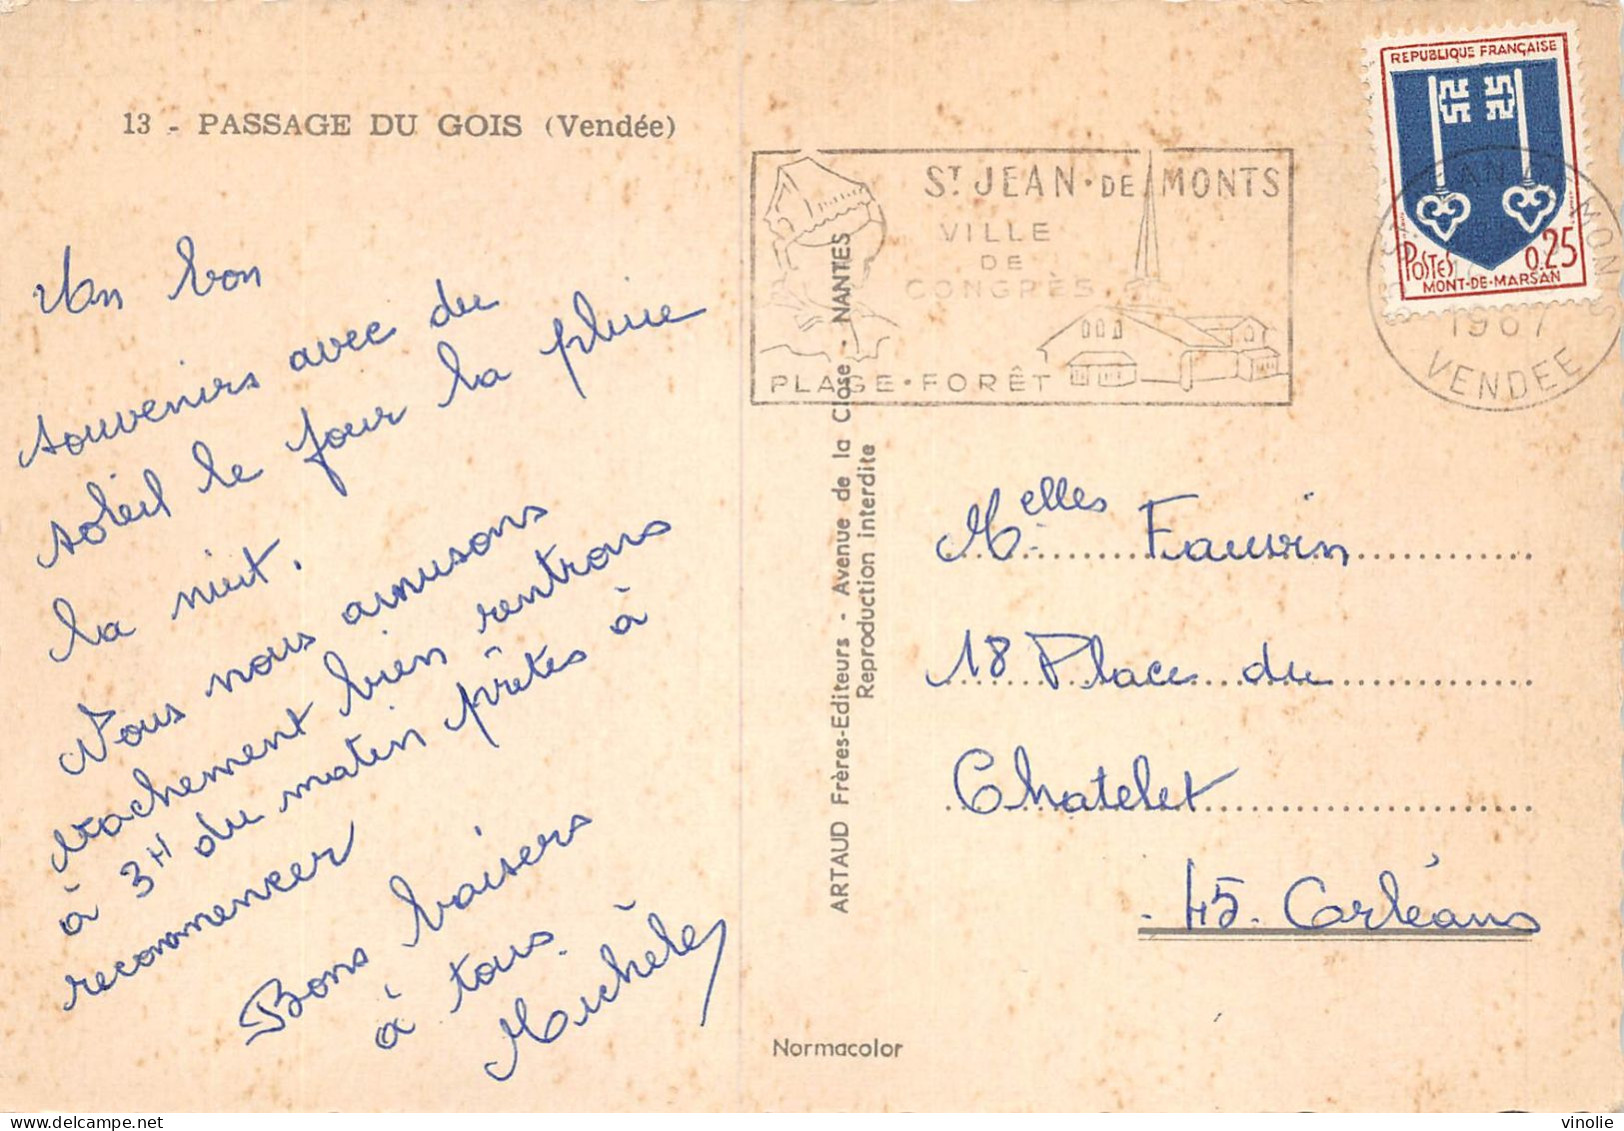 13 - PASSAGE DU GOIS (Vendée)
Un bon
souvenirs avec du
soleil le jour la pluie
la nuit.
Nous nous amusons
vachement bien rentrons
à 3H du matin prêtes à
recommencer
Bons baisers
à tous.
Michèle
ARTAUD Frères-Editeurs - Avenue de la Close - NANTES
Reproduction interdite
Normacolor
ST JEAN·DE MONTS
VILLE
DE
CONGRÈS
PLAGE·FORÊT
REPUBLIQUE FRANÇAISE
POSTES 0.25
MONT-DE-MARSAN
1967
VENDEE
Melles Fauvin
18 Place du
Chatelet
-45- Orléans
vinolie